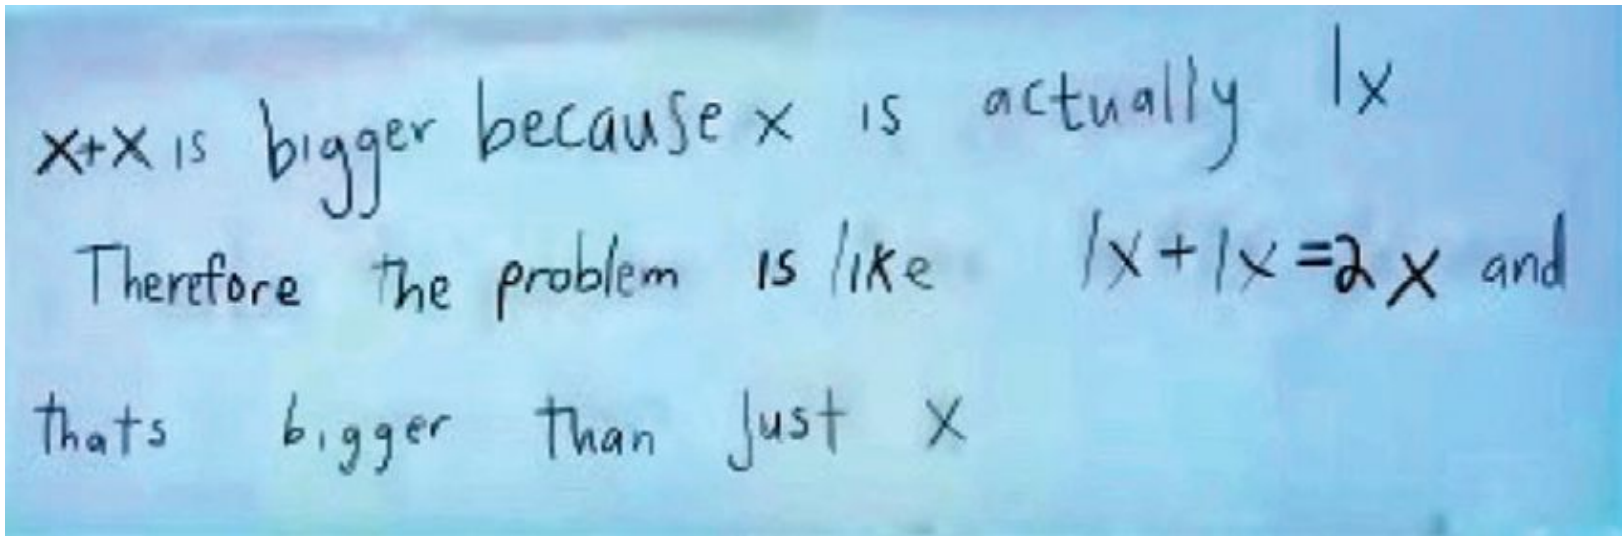 x+x is bigger because x is actually 1x
Therefore the problem is like 1x+1x=2x and
thats bigger than just x